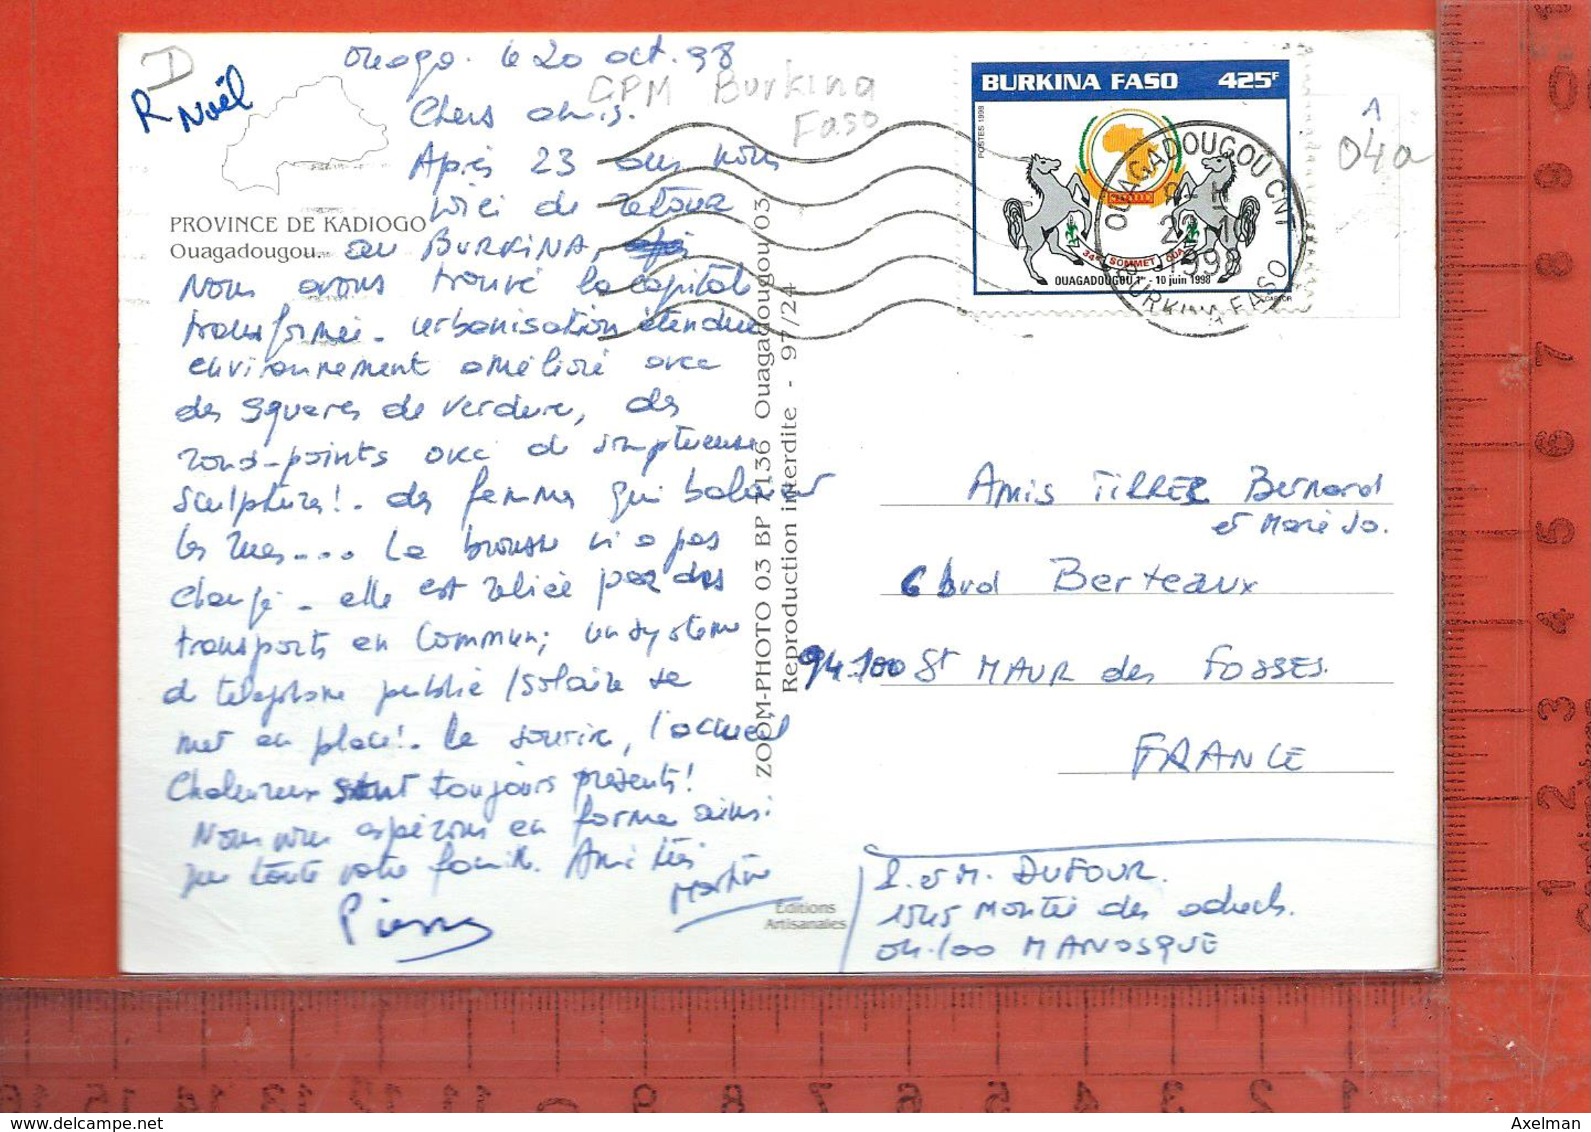 D
R Noël
GPM Burkina
Faso
A
04a
PROVINCE DE KADIOGO
Ouagadougou.
Ouaga. le 20 oct. 98
Chers amis.
Après 23 ans nous
voici de retour
au BURKINA,
Nous avons trouvé la capitale
transformée - urbanisation étendue
environnement amélioré avec
des squares de verdure, des
rond-points avec de somptueuses
sculptures! - des femmes qui balaient
les rues.... La brousse n'a pas
changé - elle est reliée par des
transports en commun; un système
de telephone public / solaire se
met en place! - Le sourire, l'accueil
chaleureux sont toujours présents!
Nous vous espérons en forme ainsi
que toute votre famille. Amitiés
Martine
Pierre
ZOOM-PHOTO 03 BP 7136 Ouagadougou 03
Reproduction interdite - 97/24
Editions
Artisanales
BURKINA FASO 425F
POSTES 1998
34e SOMMET OUA
OUAGADOUGOU 1er - 10 juin 1998
CASTOR
OUAGADOUGOU CNT
1998
BURKINA FASO
Amis TIRRER Bernard
et Marie Jo.
6 bvd Berteaux
94.100 St MAUR des FOSSES.
FRANCE
P. et M. DUFOUR.
1545 Montée des adrechs.
04.100 MANOSQUE
16 15 14 13 12 11 9 8 7 6 5 4 3 2 1
1 2 3 4 5 6 7 8
Axelman